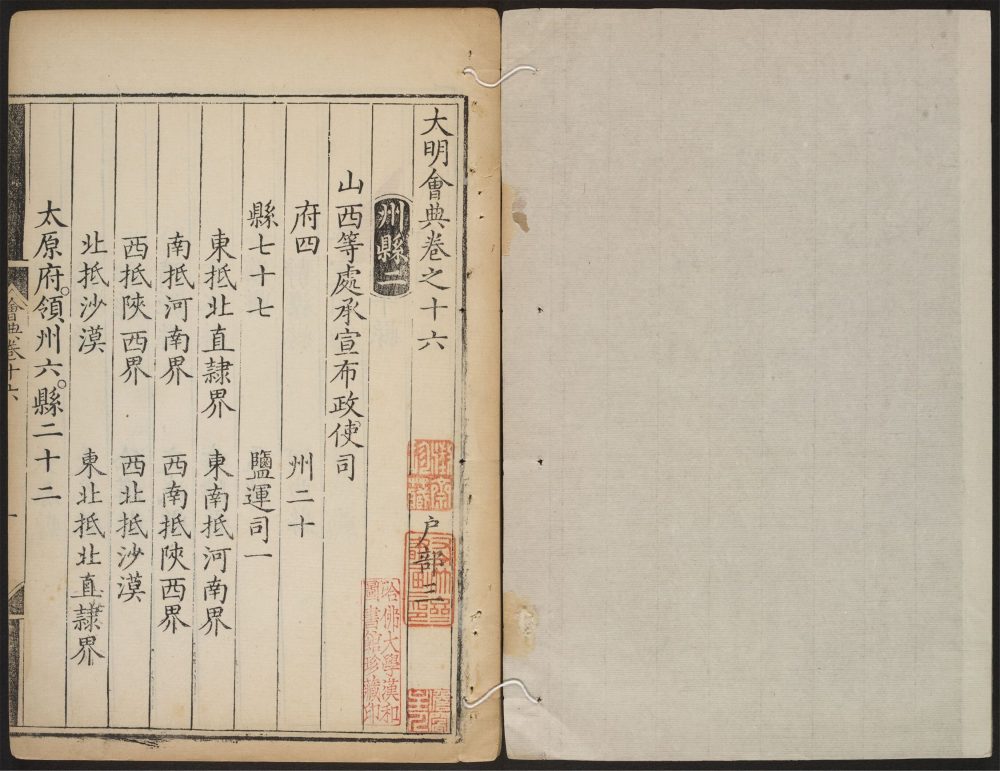 大明會典卷之十六 戶部三
州縣二
山西等處承宣布政使司
府四 州二十
縣七十七 鹽運司一
東抵北直隷界 東南抵河南界
南抵河南界 西南抵陝西界
西抵陝西界 西北抵沙漠
北抵沙漠 東北抵北直隷界
太原府。領州六。縣二十二
會典卷十六
一
哈佛大學漢和
圖書館珍藏印